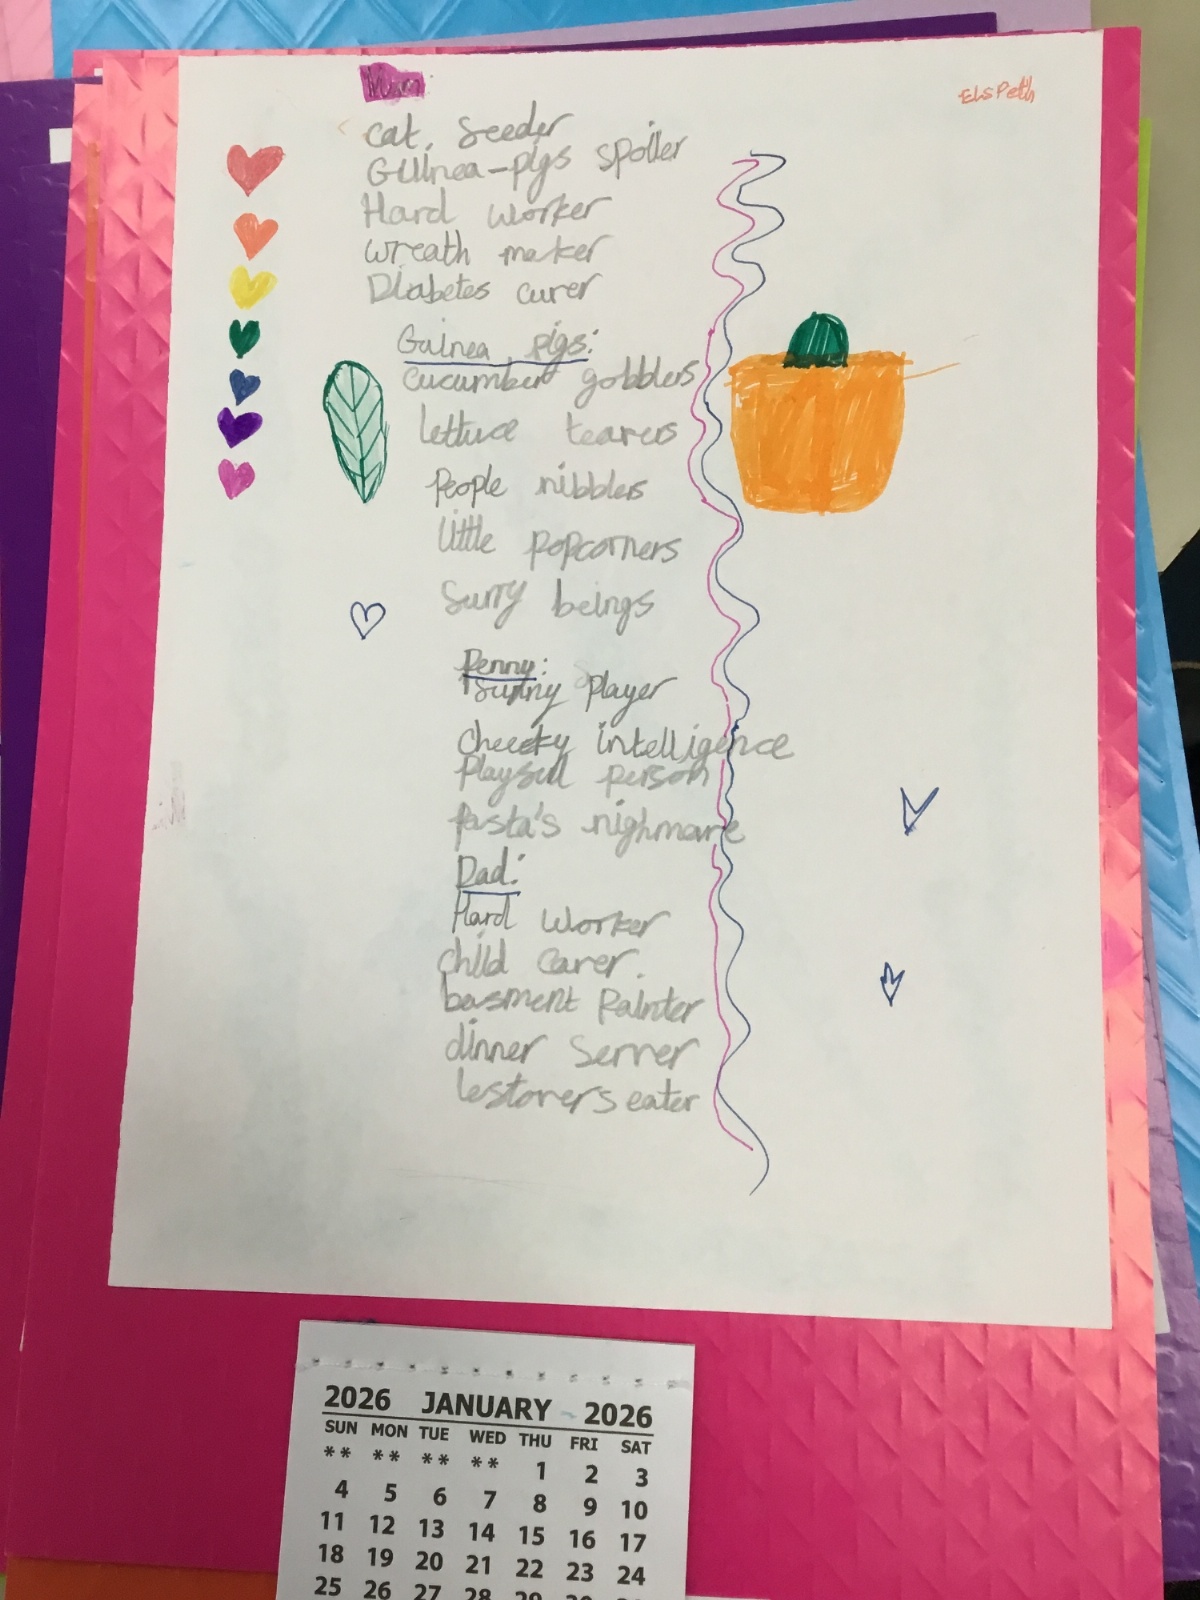 Mum
Elspeth
cat, seeder
Guinea-pigs spoiler
Hard worker
wreath maker
Diabetes curer
Guinea pigs:
cucumber gobblers
lettuce tearers
People nibblers
little popcorners
Surry beings
Penny:
Sunny player
cheeky intelligence
Playsul person
Pasta's nighmare
Dad:
Hard worker
child carer.
basment Painter
dinner Server
lestovers eater
2026 JANUARY 2026
SUN MON TUE WED THU FRI SAT
** ** ** ** 1 2 3
4 5 6 7 8 9 10
11 12 13 14 15 16 17
18 19 20 21 22 23 24
25 26 27 28 29 30